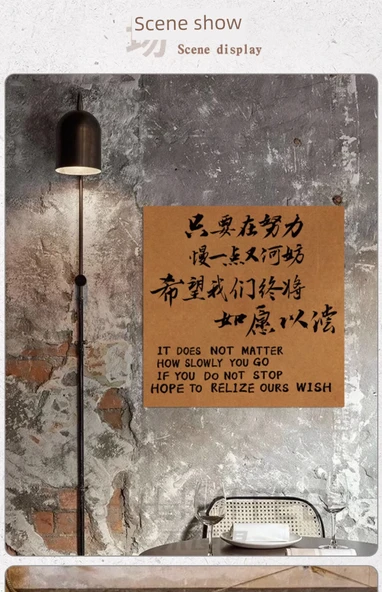 Scene show
场
Scene display
只要在努力
慢一点又何妨
希望我们终将
如愿以偿
IT DOES NOT MATTER
HOW SLOWLY YOU GO
IF YOU DO NOT STOP
HOPE TO RELIZE OURS WISH